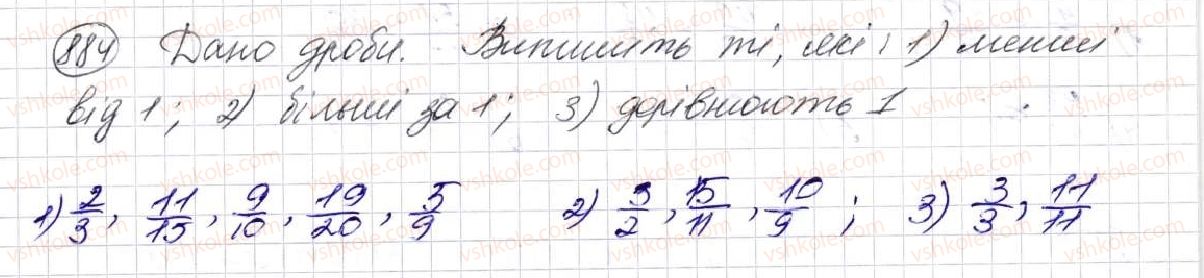 884 Дано дроби. Випишіть ті, які: 1) менші
від 1; 2) більші за 1; 3) дорівнюють 1
1) 2/3, 11/15, 9/10, 19/20, 5/9 2) 3/2, 15/11, 10/9; 3) 3/3, 11/11
vshkole.com